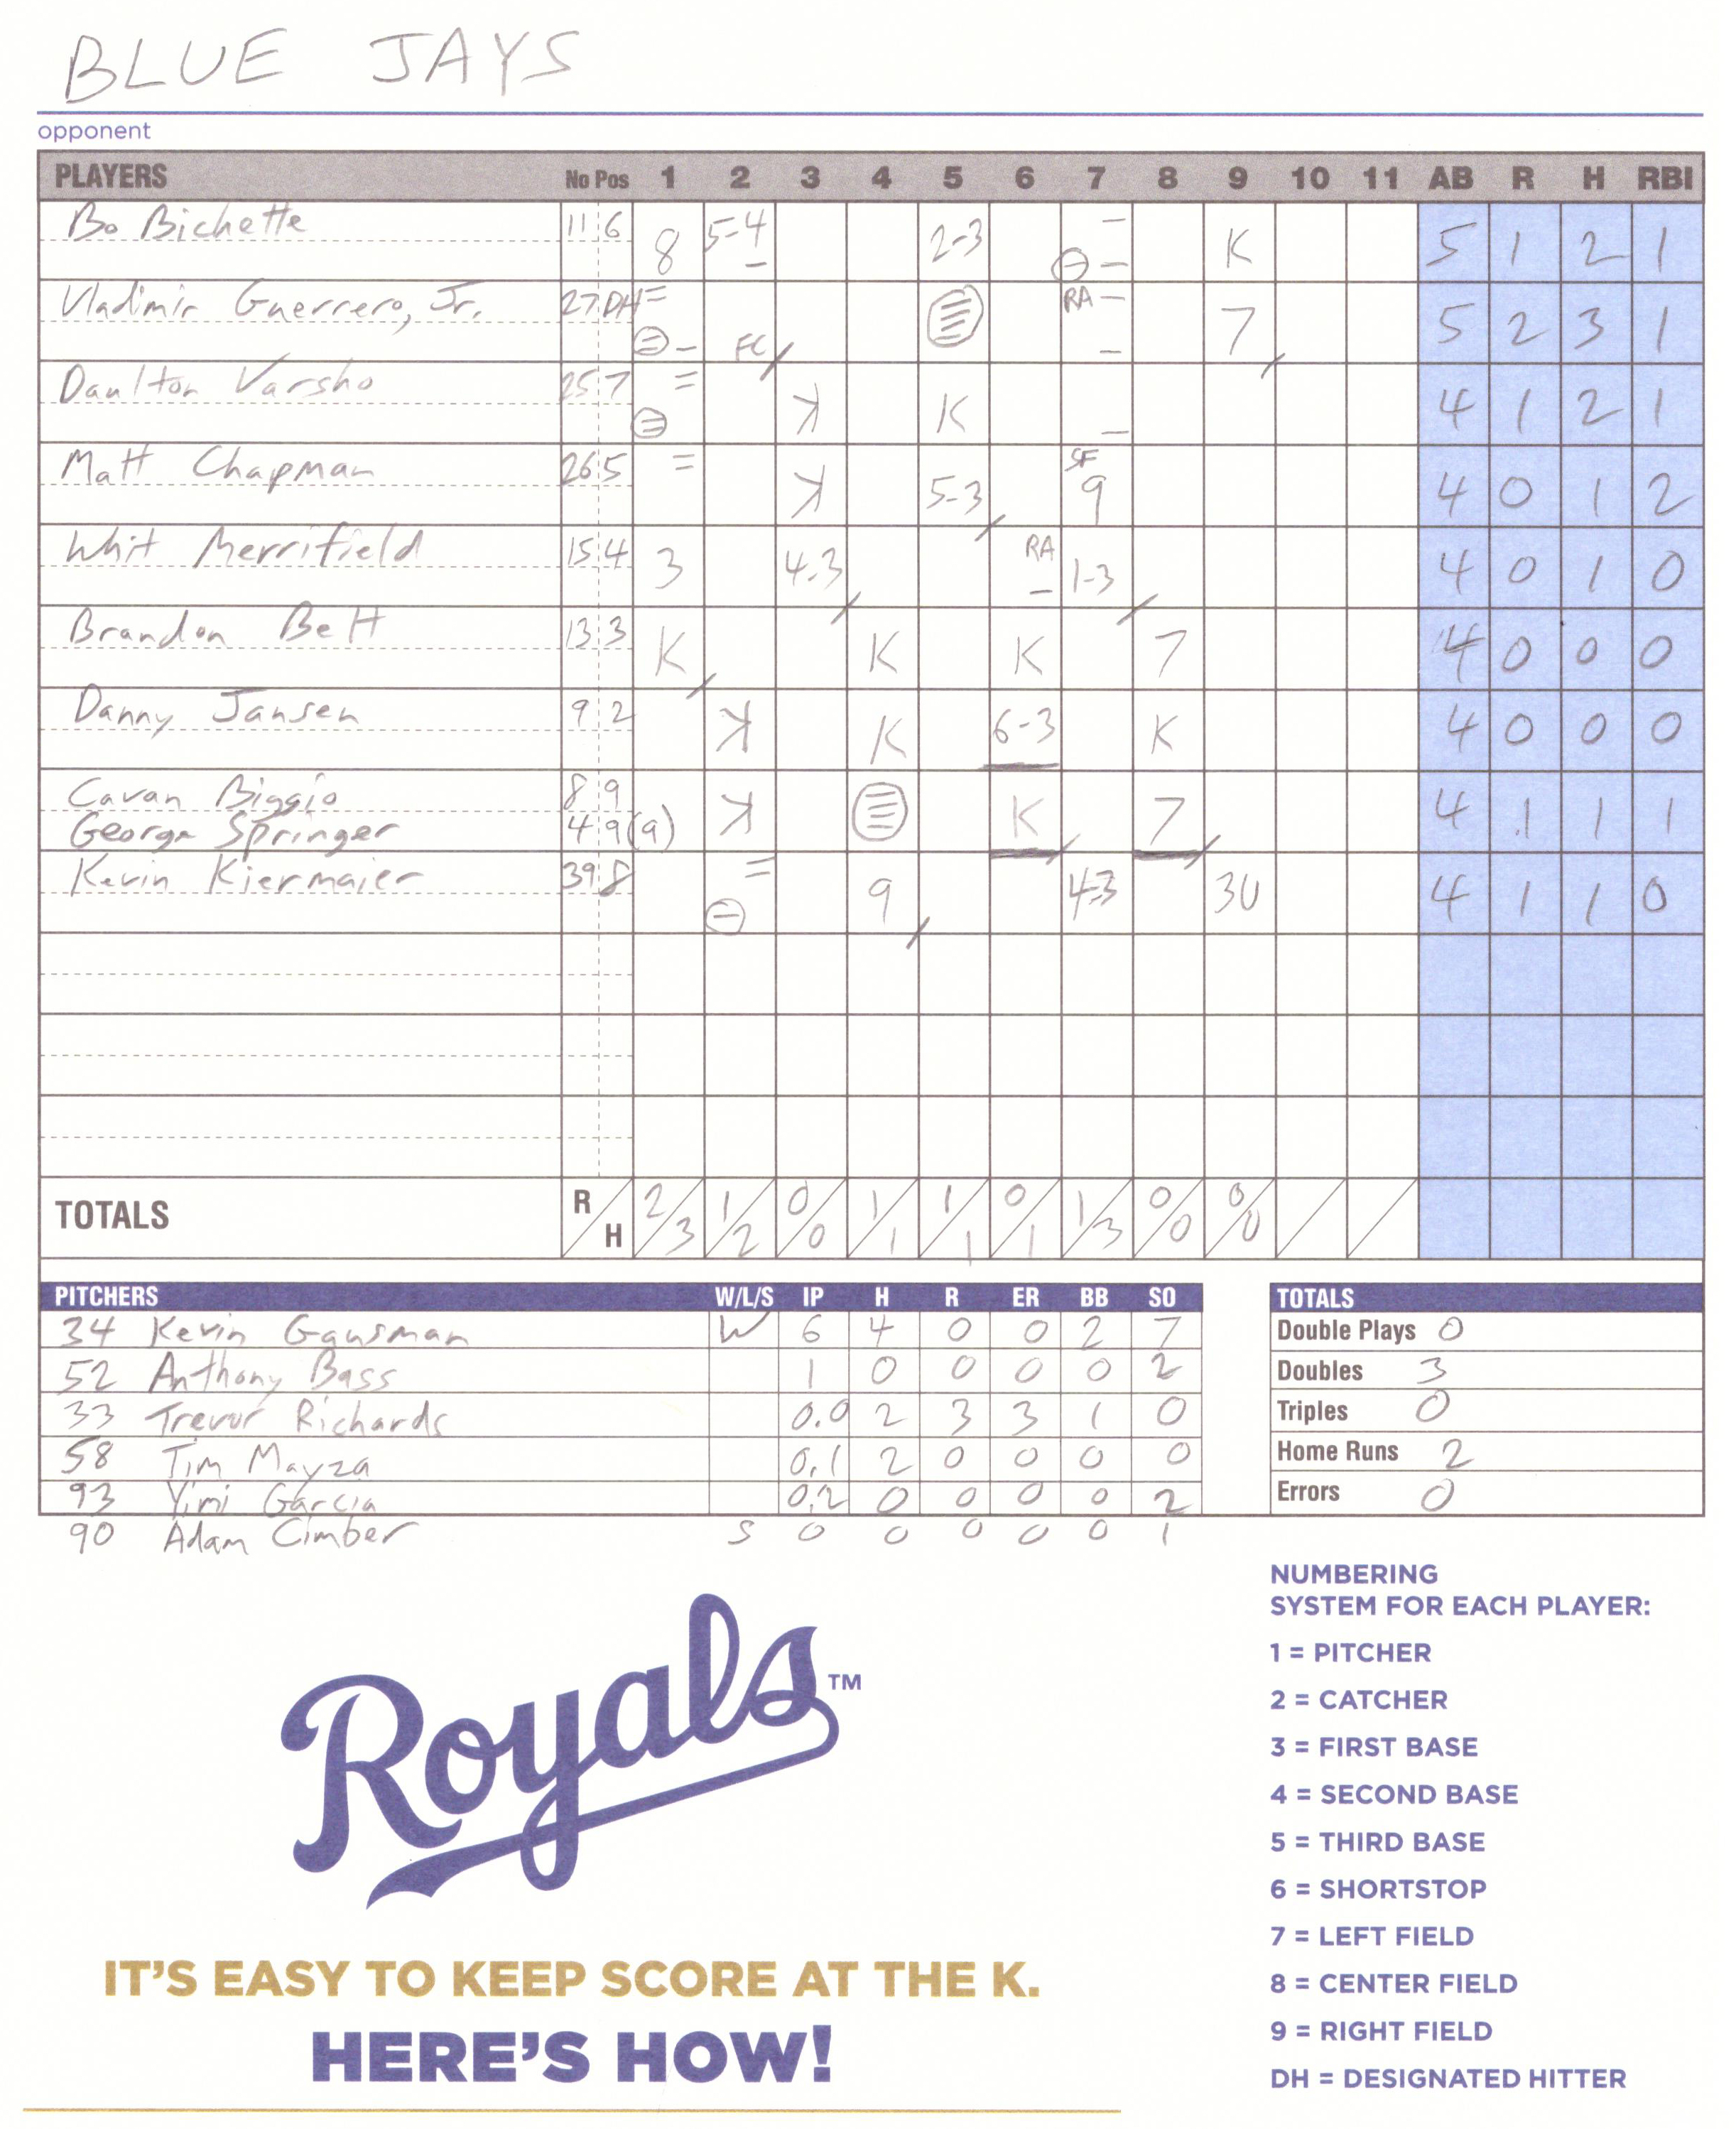 BLUE JAYS
opponent
PLAYERS No Pos 1 2 3 4 5 6 7 8 9 10 11 AB R H RBI
Bo Bichette 11 6 8 5-4 2-3 K 5 1 2 1
Vladimir Guerrero, Jr. 27 DH FC RA 7 5 2 3 1
Daulton Varsho 25 7 K K 4 1 2 1
Matt Chapman 26 5 K 5-3 SF 9 4 0 1 2
Whit Merrifield 15 4 3 4-3 RA 1-3 4 0 1 0
Brandon Belt 13 3 K K K 7 4 0 0 0
Danny Jansen 9 2 K K 6-3 K 4 0 0 0
Cavan Biggio 8 9 K K 7 4 1 1 1
George Springer 4 9(9)
Kevin Kiermaier 39 8 9 4-3 3U 4 1 1 0
TOTALS R/H 2/3 1/2 0/0 1/1 1/1 0/1 1/3 0/0 0/0
PITCHERS W/L/S IP H R ER BB SO
34 Kevin Gausman W 6 4 0 0 2 7
52 Anthony Bass 1 0 0 0 0 2
33 Trevor Richards 0.0 2 3 3 1 0
58 Tim Mayza 0.1 2 0 0 0 0
93 Yimi Garcia 0.2 0 0 0 0 2
90 Adam Cimber S 0 0 0 0 0 1
TOTALS
Double Plays 0
Doubles 3
Triples 0
Home Runs 2
Errors 0
Royals™
IT'S EASY TO KEEP SCORE AT THE K.
HERE'S HOW!
NUMBERING
SYSTEM FOR EACH PLAYER:
1 = PITCHER
2 = CATCHER
3 = FIRST BASE
4 = SECOND BASE
5 = THIRD BASE
6 = SHORTSTOP
7 = LEFT FIELD
8 = CENTER FIELD
9 = RIGHT FIELD
DH = DESIGNATED HITTER